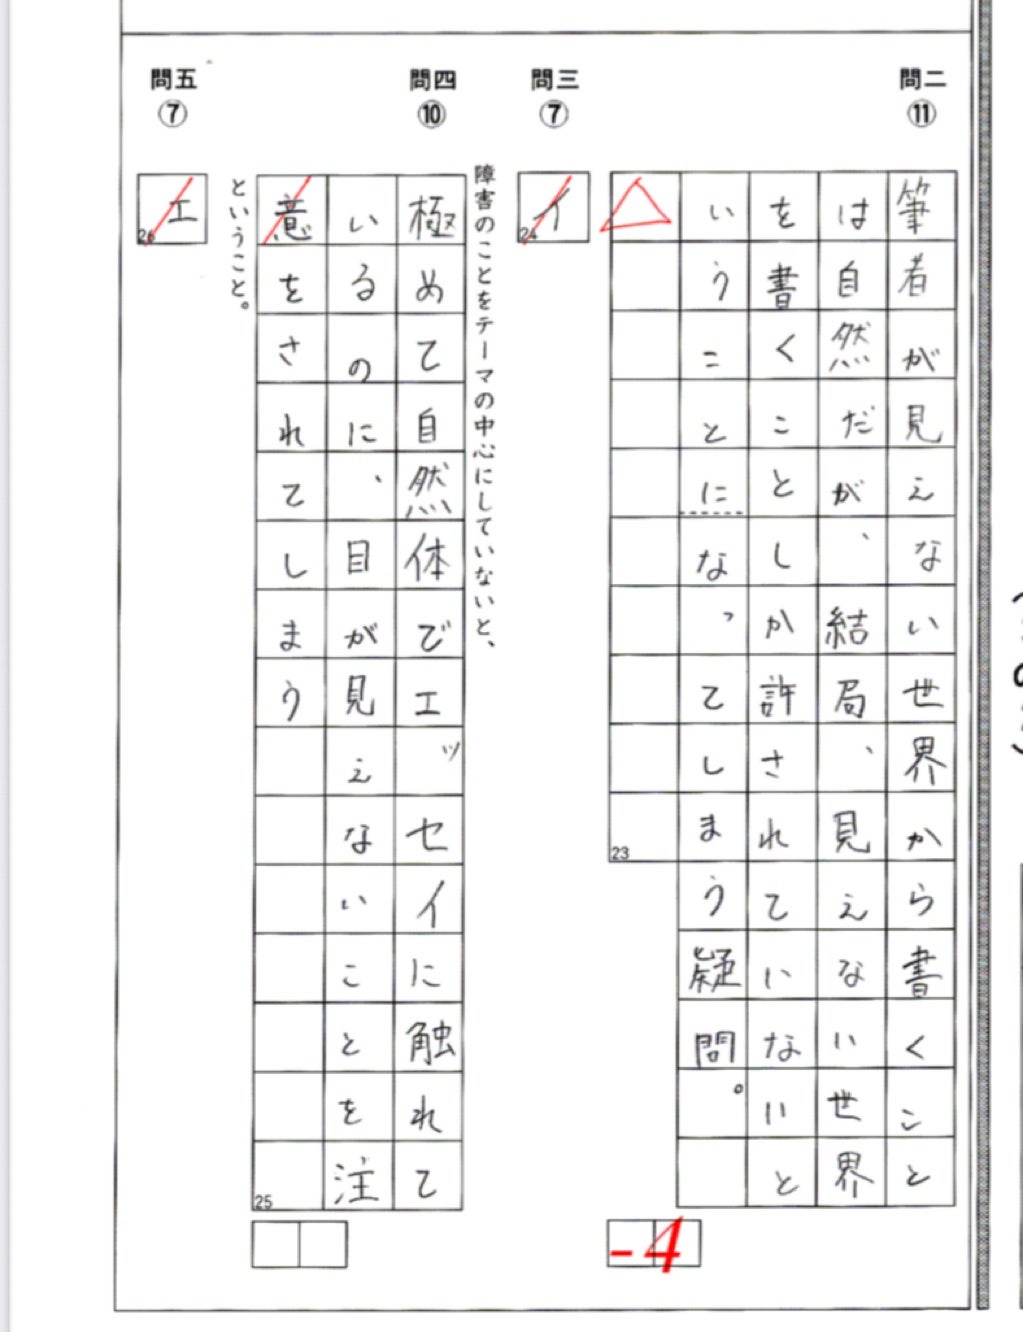 問二
⑪
筆者が見えない世界から書くこと
は自然だが、結局、見えない世界
を書くことしか許されていないと
いうことになってしまう疑問。
△
23
-4
問三
⑦
イ
24
問四
⑩
障害のことをテーマの中心にしていないと、
極めて自然体でエッセイに触れて
いるのに、目が見えないことを注
意をされてしまう
25
ということ。
問五
⑦
エ
26